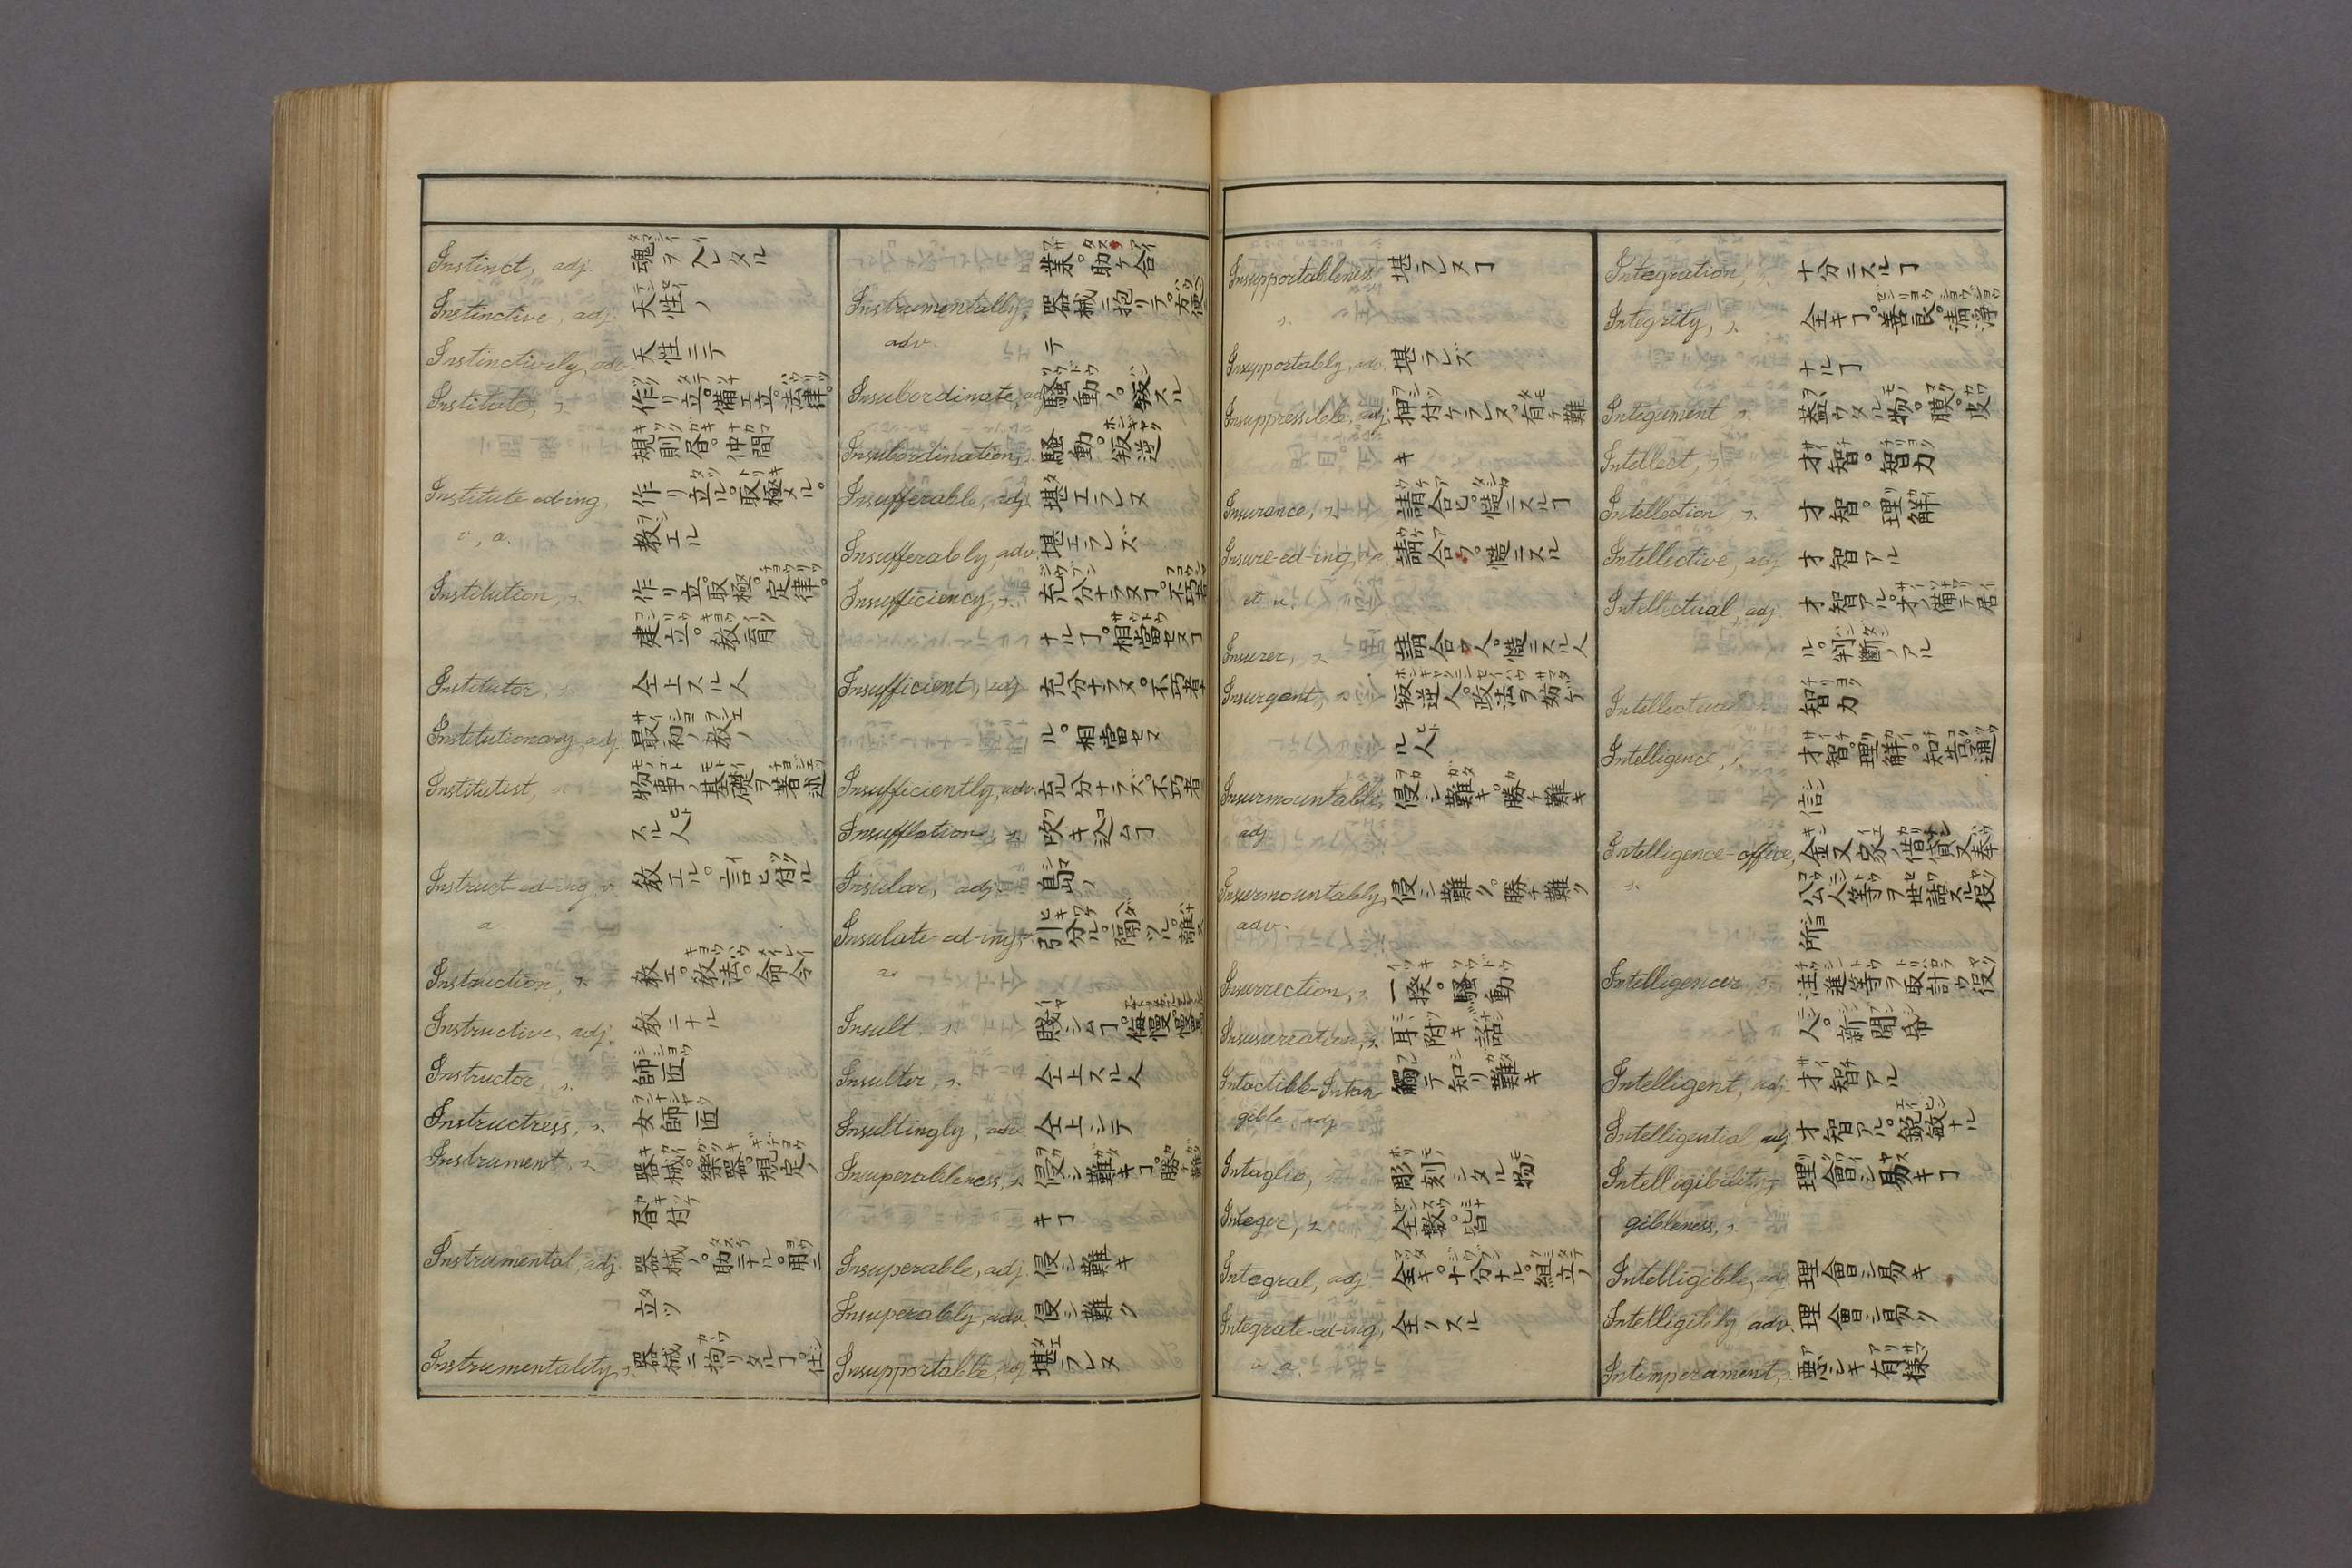 Instinct, adj. 魂ヲ入レタル
Instinctive, adj. 天性ノ
Instinctively, adv. 天性ニテ
Institute, s. 作リ立。備エ立。法律。
規則書。仲間
Institute-ed-ing, 作リ立ル。取極メル。
v, a. 教エル
Institution, s. 作リ立。取極。定律。
建立。教育
Institutor, s. 仝上スル人
Institutionary, adj. 最初ノ。教ノ
Institutist, 物事ノ基礎ヲ著述
スル人
Instruct-ed-ing, v. 教エル。言ヒ付ル
a.
Instruction, s. 教エ。教法。命令
Instructive, adj. 教ニナル
Instructor, s. 師匠
Instructress, s. 女師匠
Instrument, s. 器械。樂器。規定ノ
書付
Instrumental, adj. 器械ノ。助ニナル。用ニ
立ツ
Instrumentality, s. 器械ニ拘リタルヿ。仕
業。助ケ合
Instrumentally, 器械ニ抱リテ。方便
adv. テ
Insubordinate, adj. 騷動ノ。叛スル
Insubordination, s. 騷動。叛逆
Insufferable, adj. 堪エラレヌ
Insufferably, adv. 堪エラレズ
Insufficiency, s. 充分ナラヌヿ。不巧者
ナルヿ。相當セヌヿ
Insufficient, adj. 充分ナラヌ。不巧者ナ
ル。相當セヌ
Insufficiently, adv. 充分ナラズ。不巧者
Insufflation, s. 吹キ込ムヿ
Insular, adj. 島ノ
Insulate-ed-ing, v. 引分ル。隔ツル。離ス
a.
Insult, s. 賤シムヿ。侮慢。
Insulter, s. 仝上スル人
Insultingly, adv. 仝上シテ
Insuperableness, s. 侵シ難キヿ。勝チ難
キヿ
Insuperable, adj. 侵シ難キ
Insuperably, adv. 侵シ難ク
Insupportable, adj. 堪エラレヌ
Insupportableness, 堪ラレヌヿ
s.
Insupportably, adv. 堪ラレズ
Insuppressible, adj. 押付ケラレヌ。有ケ難
キ
Insurance, s. 請合ヒ。慥ニスルヿ
Insure-ed-ing, v.a. 請合フ。慥ニスル
et n.
Insurer, s. 請合フ人。慥ニスル人
Insurgent, 叛逆人。政法ヲ妨ゲ
ル人
Insurmountable, 侵シ難キ。勝チ難キ
adj.
Insurmountably, 侵シ難ク。勝チ難ク
adv.
Insurrection, s. 一揆。騷動
Insusurration, s. 耳附キ話
Intactible-Intan 觸テ知リ難キ
gible, adj.
Intaglio, 彫刻シタル物
Integer, s. 全數。皆
Integral, adj. 全キ。十分ナル。組立ノ
Integrate-ed-ing, 全クスル
v. a.
Integration, s. 十分ニスルヿ
Integrity, s. 全キヿ。善良。清淨
ナルヿ
Integument, s. 蓋ウタル物。膜。皮
Intellect, s. 才智。智力
Intellection, s. 才智。理解
Intellective, adj. 才智アル
Intellectual, adj. 才智アル。才ノ備テ居
ル。判斷ノアル
Intellectual 智力
Intelligence, s. 才智。理解。知告。通
信
Intelligence-office, 金又家ノ借貸又奉
s. 公人等ヲ世話スル役
所
Intelligencer, s. 注進等ヲ取計ウ役
人。新聞帋
Intelligent, adj. 才智アル
Intelligential, adj. 才智アル。鋭敏ナル
Intelligibility- 理會シ易キヿ
gibleness, s.
Intelligible, adj. 理會シ易キ
Intelligibly, adv. 理會シ易ク
Intemperament, s. 悪シキ有樣